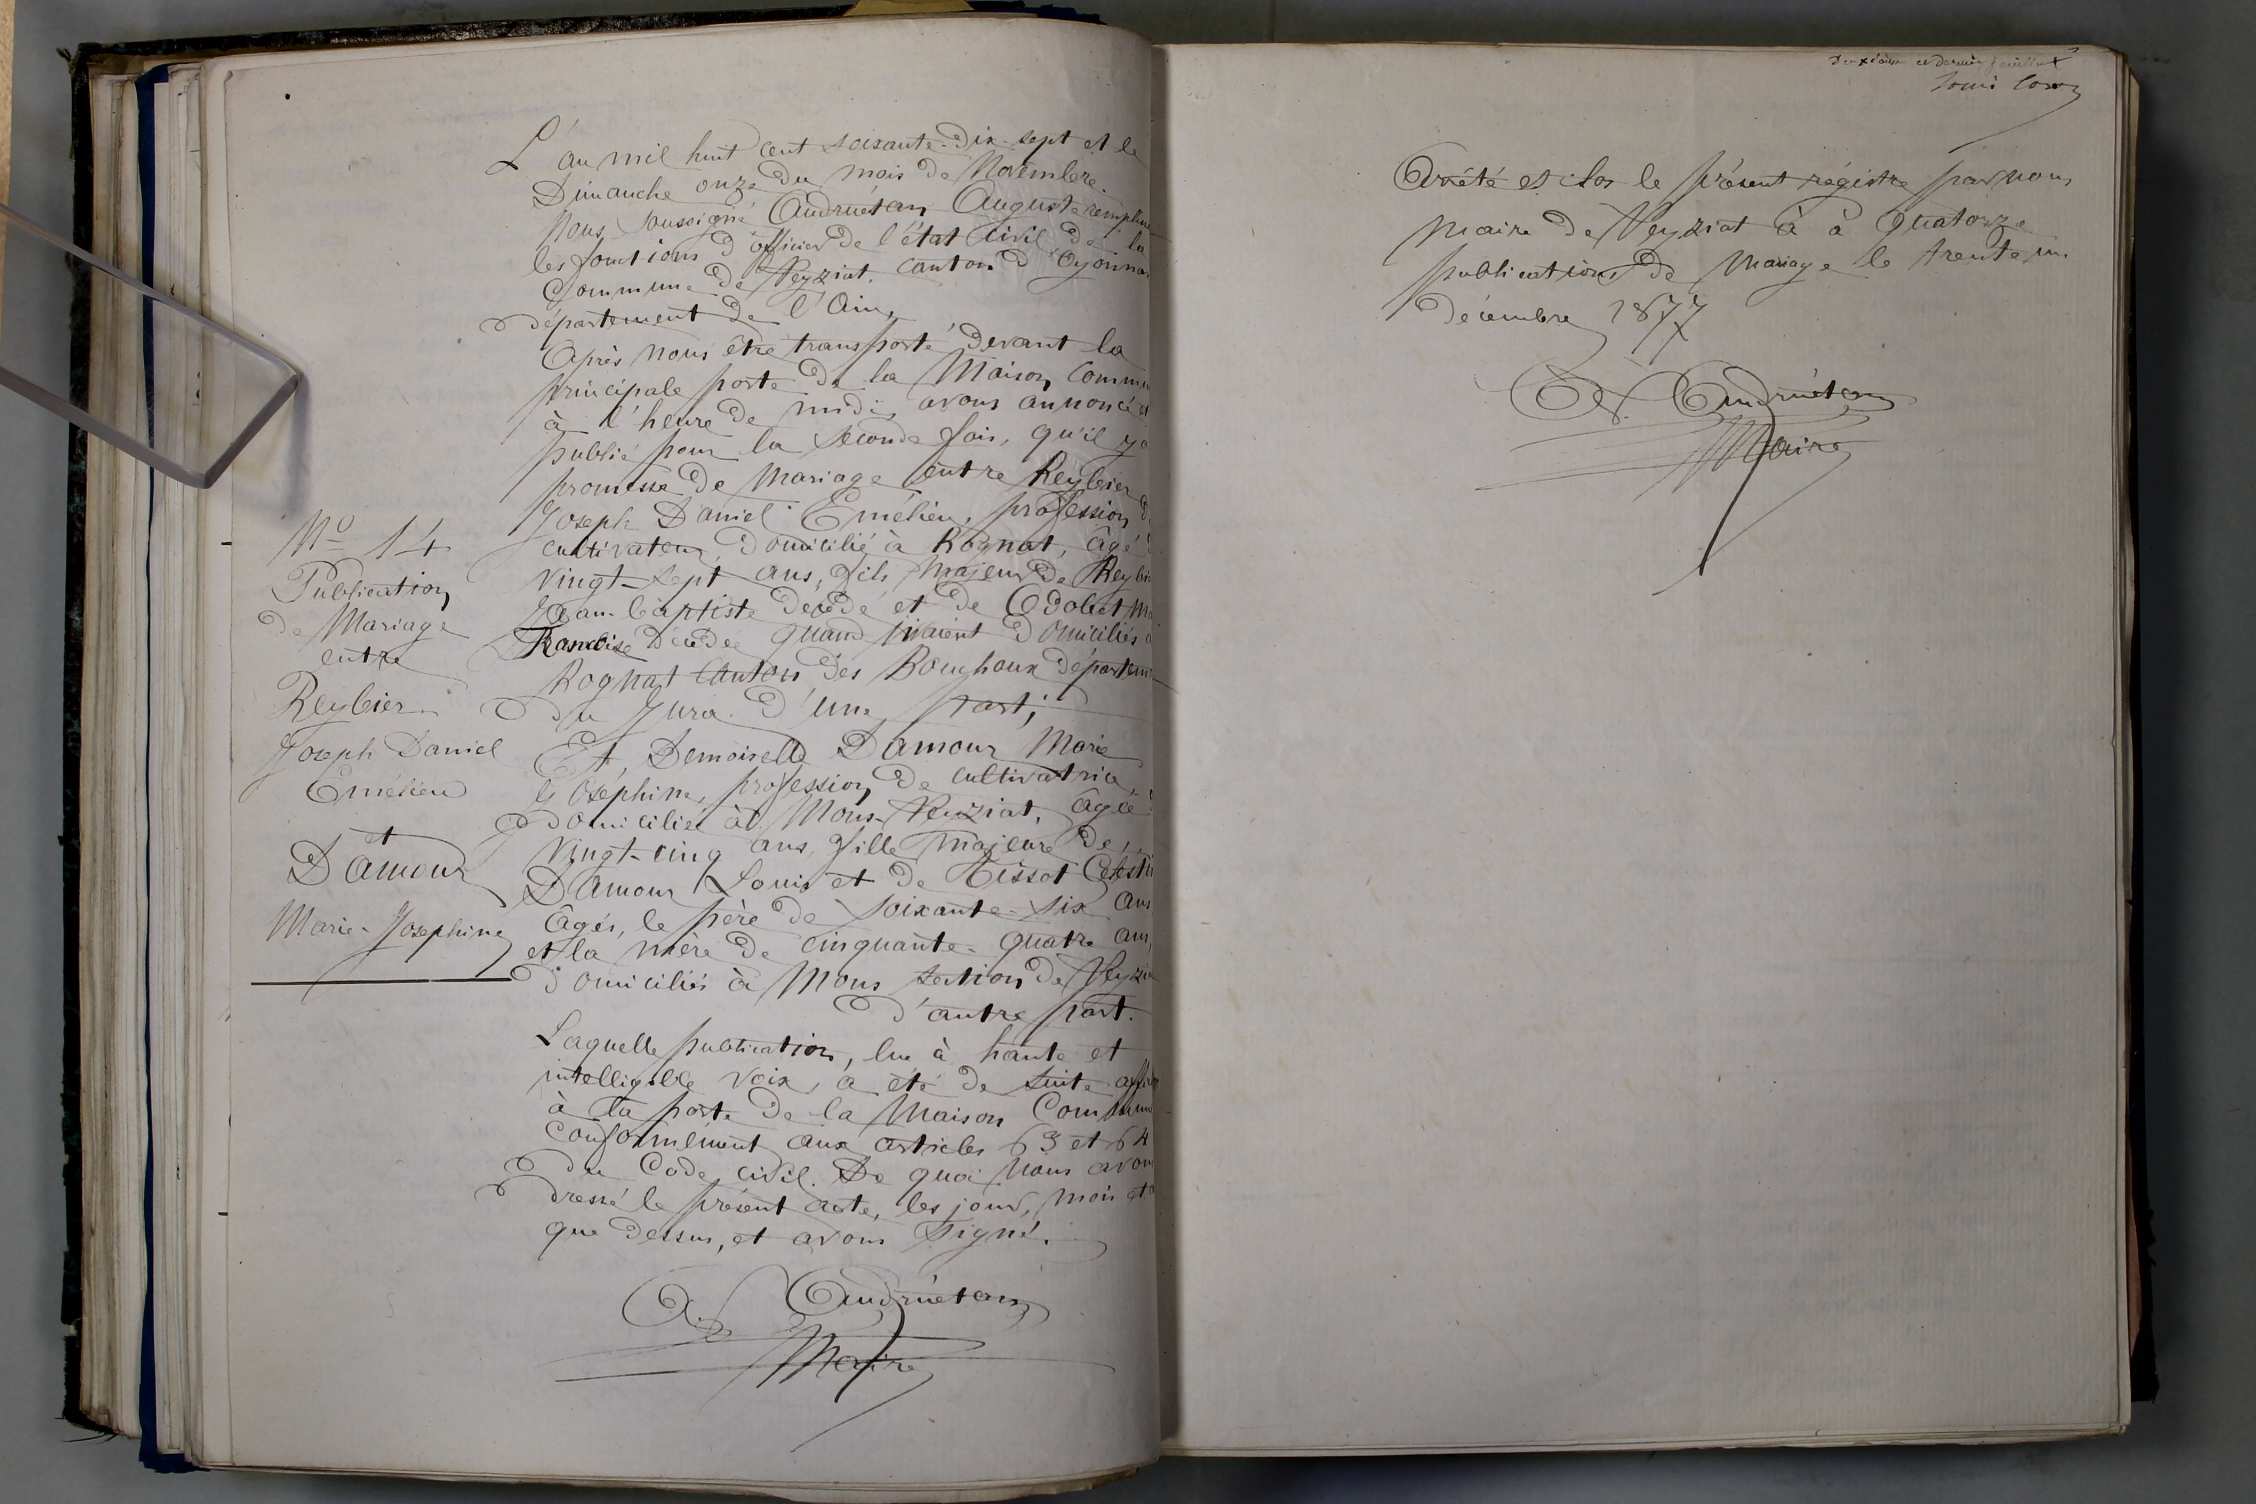 L'an mil huit cent soixante-dix-sept et le
Dimanche onze du mois de Novembre.
Nous soussigné Andruétan Auguste remplissant
les fonctions d'officier de l'état civil de la
Commune de Veyziat, canton d'Oyonnax
département de l'Ain,
Après nous être transporté devant la
principale porte de la Maison Commune
à l'heure de midi, avons annoncé et
publié pour la seconde fois, qu'il y a
promesse de Mariage entre Reybier
Joseph Daniel Emélien, profession de
cultivateur, domicilié à Rognat, âgé de
vingt-sept ans, fils majeur de Reybier
Jean-baptiste décédé et de Edobet
Francoise Décédée quand vivaient domiciliés à
Rognat Canton des Bouchoux département
du Jura d'une part;
Et Demoiselle Damour Marie
Joséphine, profession de cultivatrice,
domiciliée à Mons-Veyziat, âgée de
vingt-cinq ans, fille majeure de
Damour Louis et de Tissot Célestine
âgés, le père de soixante-six ans
et la mère de cinquante-quatre ans,
domiciliés à Mons section de Veyziat
d'autre part.
Laquelle publication, lue à haute et
intelligible voix, a été de suite affichée
à la porte de la Maison Commune
Conformément aux articles 63 et 64
du Code civil. De quoi nous avons
dressé le présent acte, les jour, mois et an
que dessus, et avons signé.
A. Andruétan
Maire
No 14
Publication
de Mariage
entre
Reybier
Joseph Daniel
Emélien
et
Damour
Marie-Josephine
Deuxième et dernier feuillet
Arrêté et clos le présent régistre par nous
maire de Veyziat à à quatorze
publications de Mariage le trente un
décembre 1877
A. Andruétan
Maire